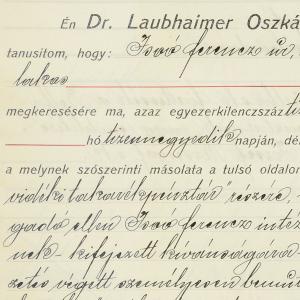 Én Dr. Laubhaimer Oszká
tanusitom, hogy: Issó ferencz úr,
lakas
megkeresésére ma, azaz egyezerkilenczszáz ti
hó tizennegyedik napján, dé
a melynek szószerinti másolata a tulsó oldalon
vidéki takarékpénztár" részére,
gadó ellen Issó ferencz intéz
nek - kifejezett kivánságára
végett személyesen